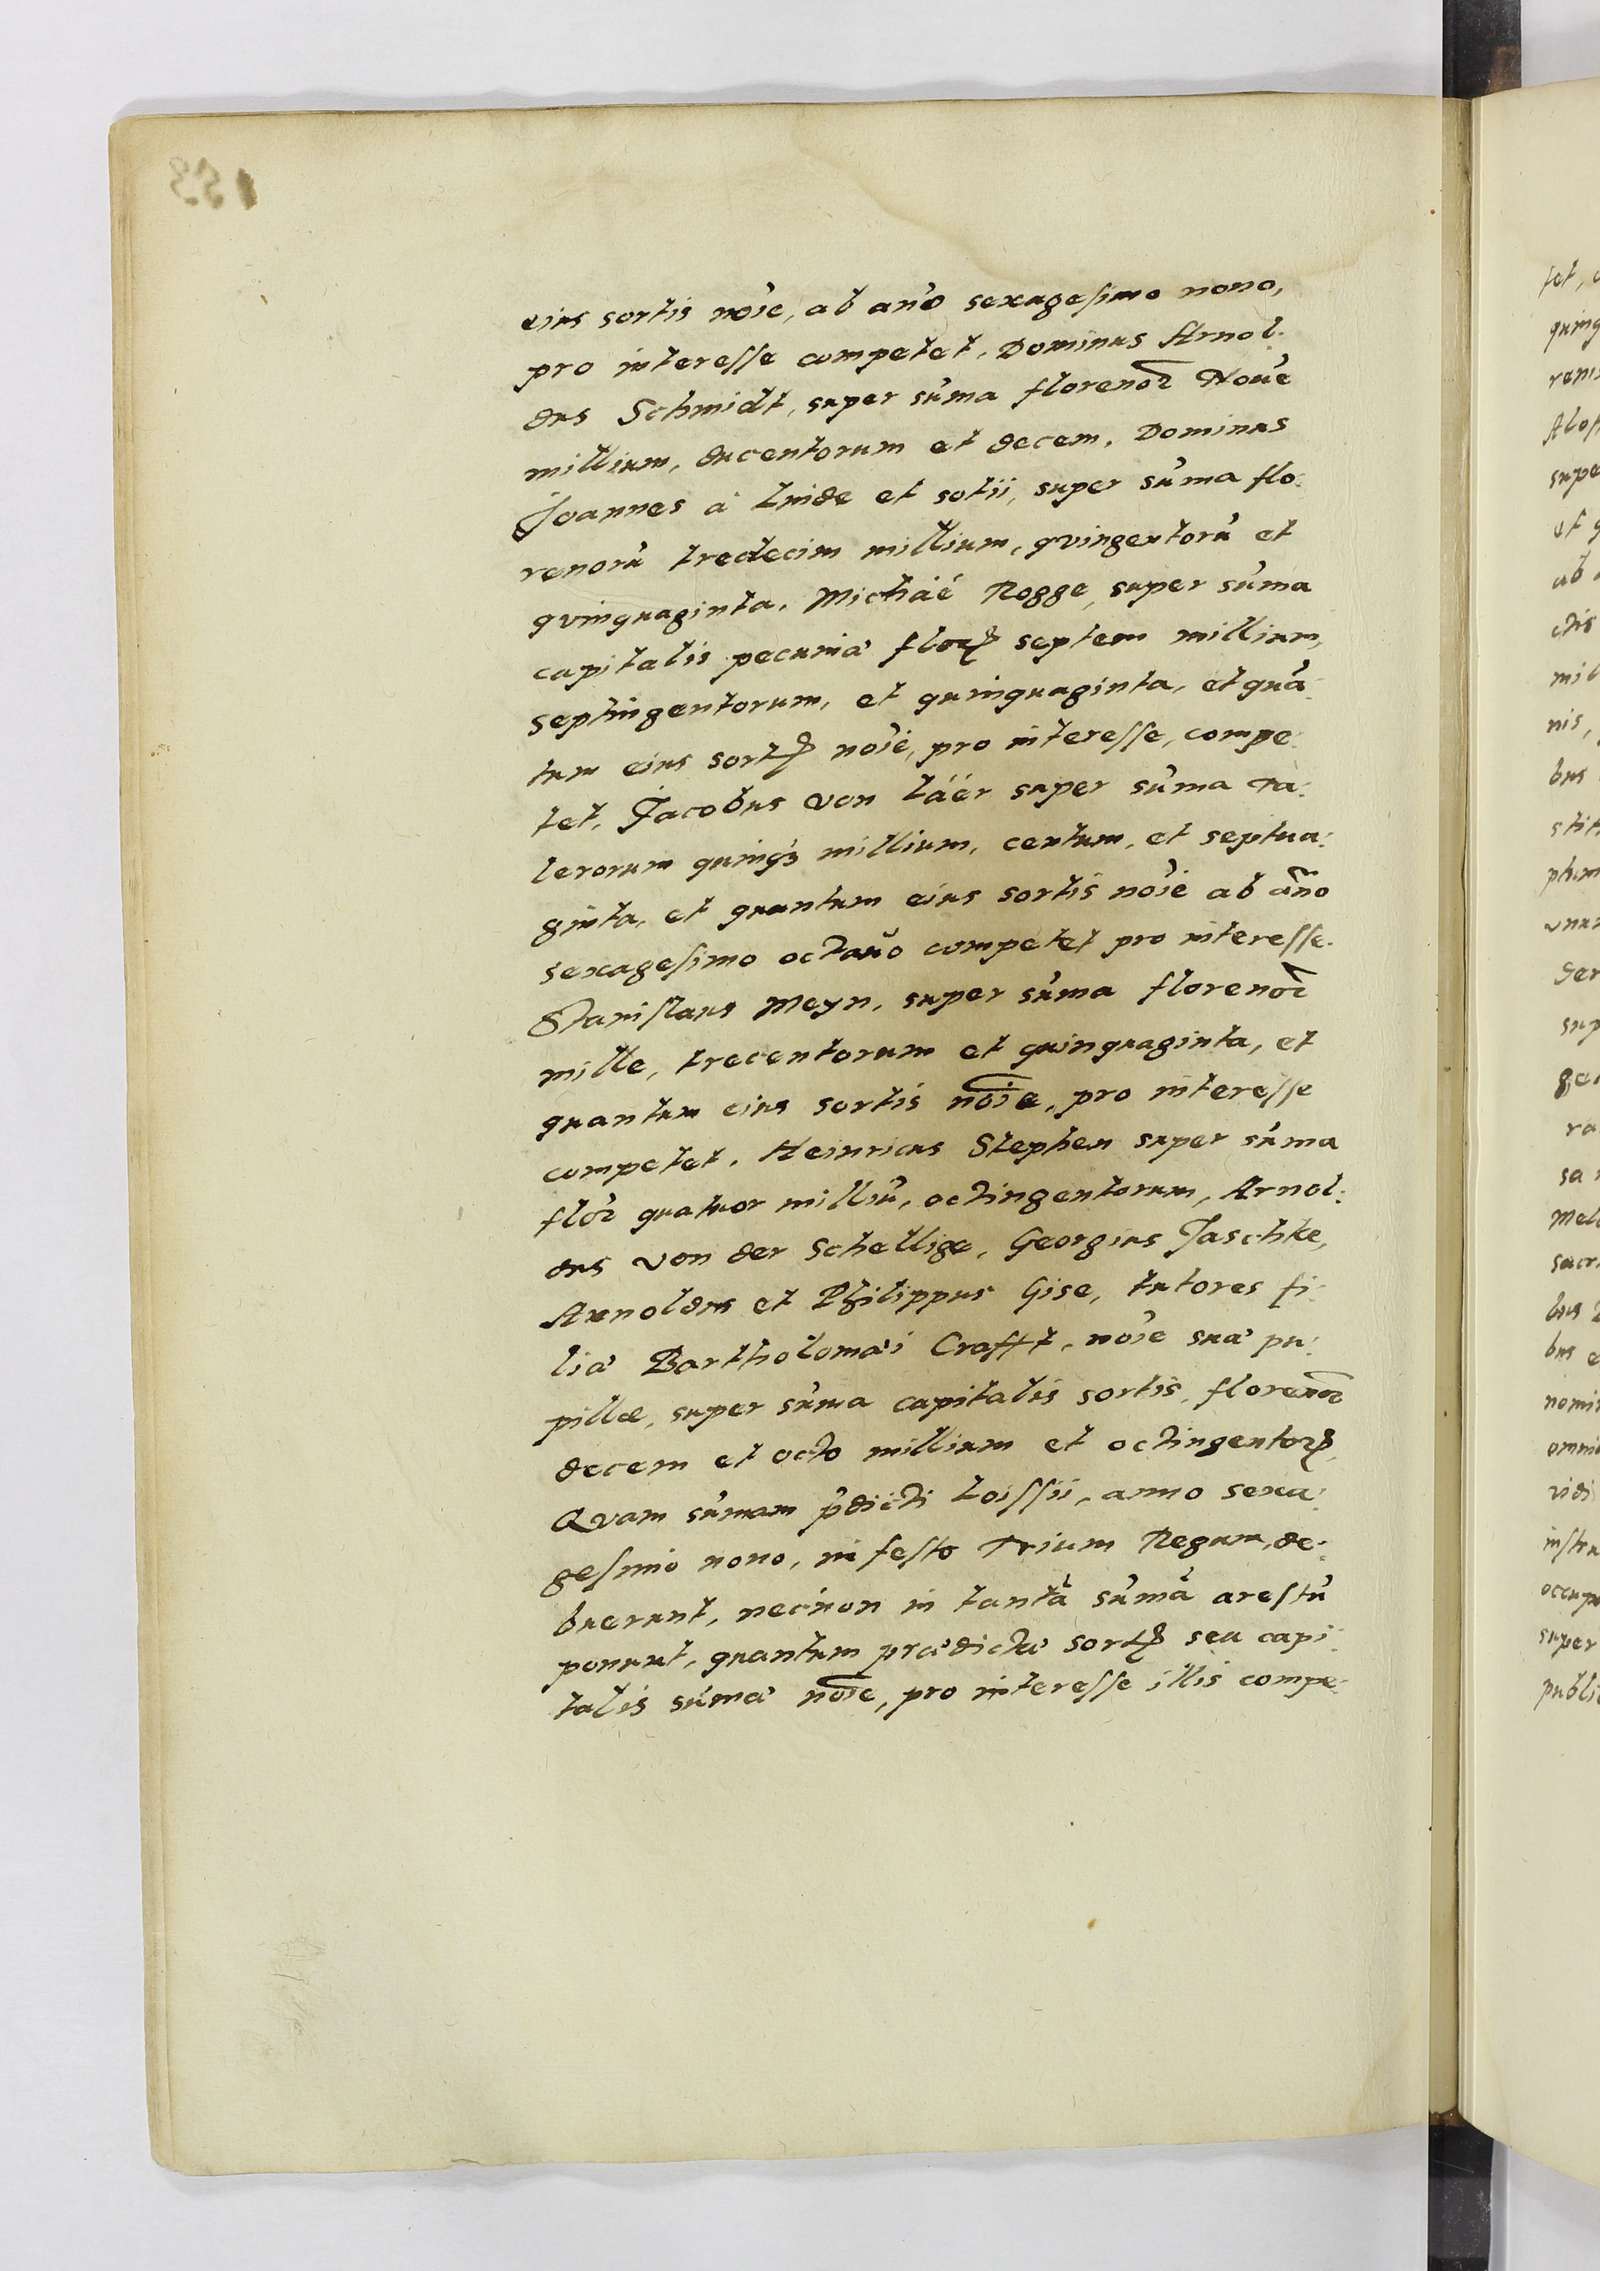 eius sortis nõie, ab anõ sexagesimo nono,
pro interesse competet, Dominus Arnol:
dus Schmidt, super sũma florenoꝝ Nouẽ
millium, ducentorum et decem, Dominus
Joannes à Linde et sotii, super sũma flo:
renorũ tredecim millium, qvingentorũ et
qvinquaginta, Michäe Rogge, super sũma
capitalis pecuniæ floꝝ septem millium,
septingentorum, et quinquaginta, et quã:
tum eius sortꝭ nõie, pro interesse, compe:
tet, Jacobus von Läer super sũma ta:
lerorum quinqꝫ millium, centum, et septua:
ginta, et quantum eius sortis nõie ab ãno
sexagesimo octauo competet pro interesse.
Stanislaus Meyn, super sũma florenoꝝ
mille, trecentorum et quinquaginta, et
quantum eius sortis nõie, pro interesse
competet, Heinricus Stephen super sũma
floꝝ quatuor milliũ, octingentorum, Arnol:
dus von der Schellige, Georgius Jaschke,
Arnoldus et Philippus Gise, tutores fi:
liæ Bartholomæi Crafft, nõie suæ pu:
pillæ, super sũma capitalis sortis, florenoꝝ
decem et octo millium et octingentoꝝ,
Qvam sũmam p̃dicti Loissii, anno sexa:
gesimo nono, in festo Trium Regum, de:
buerunt, necnon in tantâ sũmâ arestũ
ponunt, quantum prædictæ sortꝭ seu capi:
talis sũmæ nõie, pro interesse illis compe: